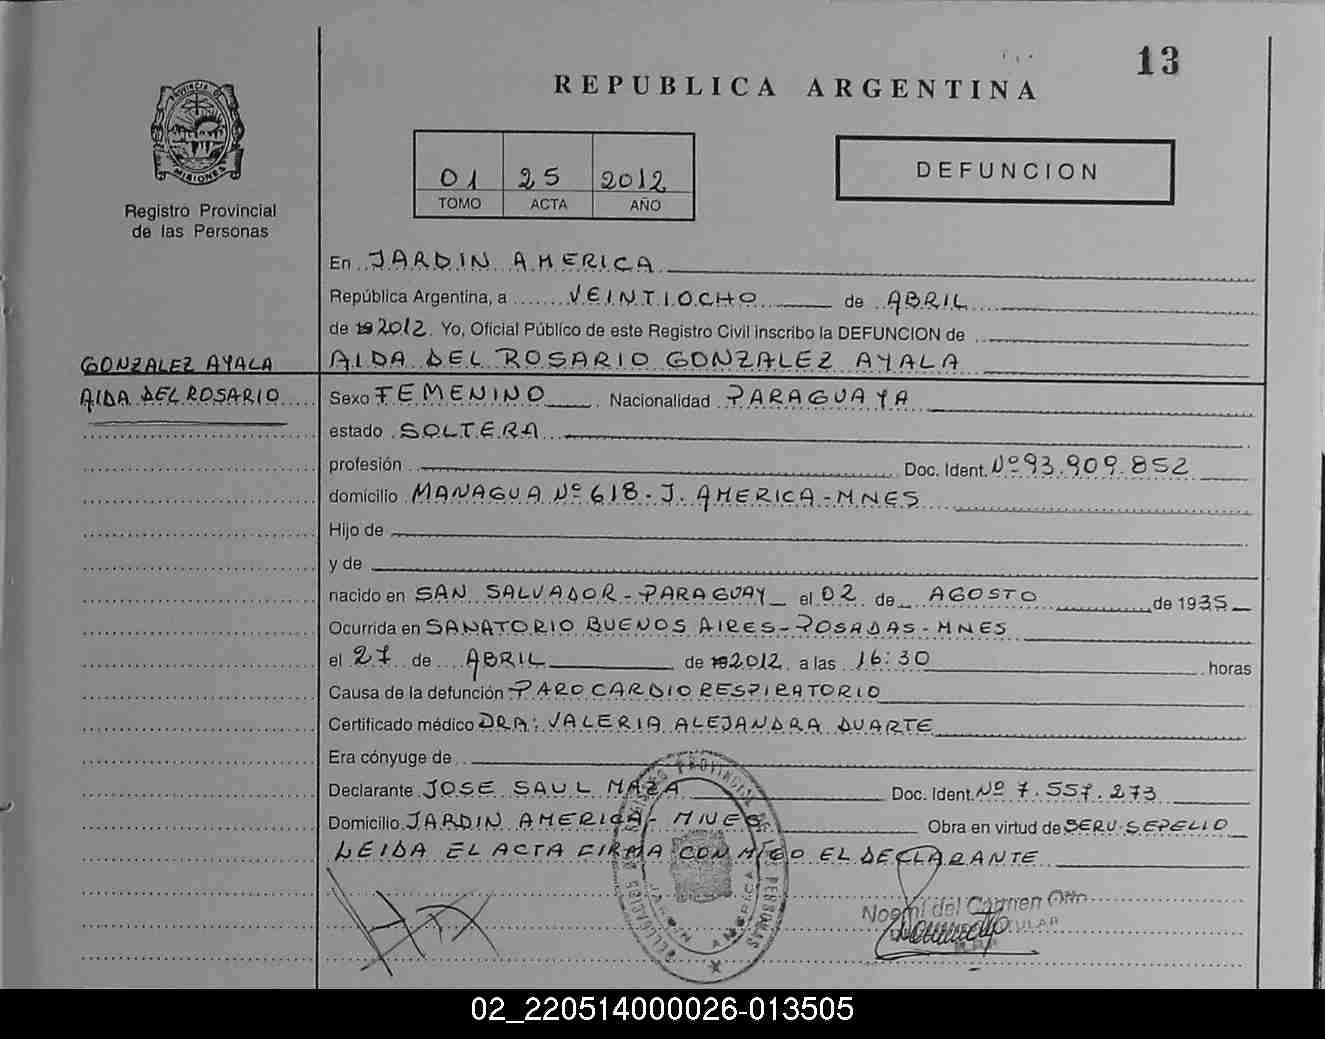 13
REPUBLICA ARGENTINA
PROVINCIA D
MISIONES
Registro Provincial
de las Personas
01 25 2012
TOMO ACTA AÑO
DEFUNCION
En JARDIN AMERICA
República Argentina, a VEINTIOCHO de ABRIL
de 19 2012. Yo, Oficial Público de este Registro Civil inscribo la DEFUNCION de
GONZALEZ AYALA
AIDA DEL ROSARIO
AIDA DEL ROSARIO GONZALEZ AYALA
Sexo FEMENINO Nacionalidad PARAGUAYA
estado SOLTERA
profesión Doc. Ident. Nº 93.909.852
domicilio MANAGUA Nº 618 - J. AMERICA - MNES
Hijo de
y de
nacido en SAN SALVADOR - PARAGUAY el 02 de AGOSTO de 1935
Ocurrida en SANATORIO BUENOS AIRES - POSADAS - MNES
el 27 de ABRIL de 19 2012 a las 16:30 horas
Causa de la defunción PARO CARDIO RESPIRATORIO
Certificado médico DRA: VALERIA ALEJANDRA DUARTE
Era cónyuge de
Declarante JOSE SAUL MAZA Doc. Ident. Nº 7.557.273
Domicilio JARDIN AMERICA - MNES Obra en virtud de SERV SEPELIO
LEIDA EL ACTA FIRMA CONMIGO EL DECLARANTE
Noemí del Carmen Otto
02_220514000026-013505